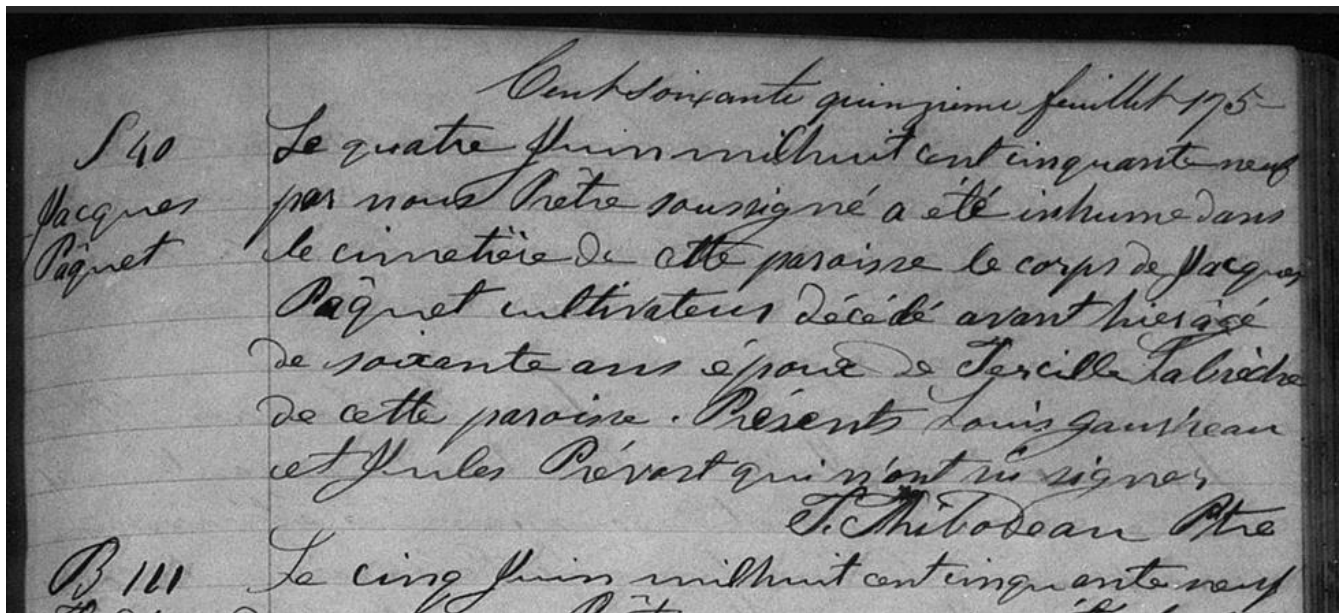 Cent soixante quinzieme feuillet 175
S 40
Jacques
Pâquet
Le quatre Juin mil huit cent cinquante neuf
par nous Prêtre soussigné a été inhumé dans
le cimetière de cette paroisse le corps de Jacques
Pâquet cultivateur décédé avant hier âgé
de soixante ans époux de Tercille Labrèche
de cette paroisse. Présents Louis Gauvreau
et Jules Prévost qui n'ont su signer
Thibodeau Ptre
B 111
Le cinq Juin mil huit cent cinquante neuf